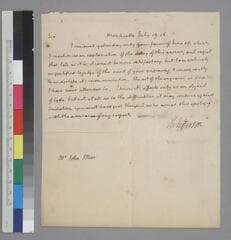 Sir Monticello July 19. 16
I received yesterday only your favor of June 27, which
I mention as an explanation of the delay of this answer, and regret
that late as it is it cannot be more satisfactory, but I am entirely
unqualified to judge of the merit of your engraving, & consequently
to undertake its recommendation. the art of the engraver is one
I have never attended to. I know its effects only as an object
of taste, but not at all as to the difficulties it may against
imitation. you must have goodness to accept this apology
with the assurance of my respect.
Th: Jefferson
Mr John